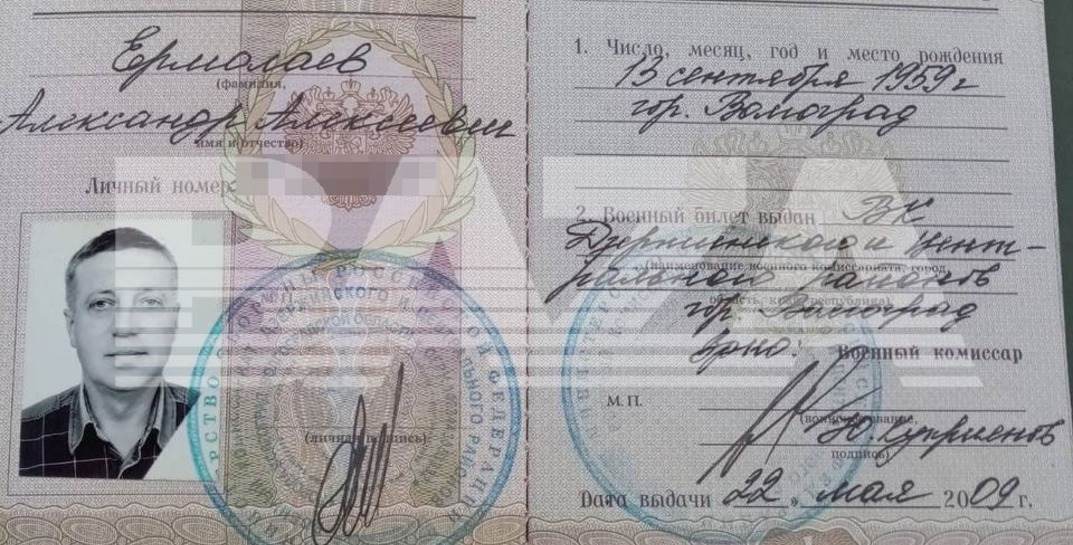 Ермолаев
(фамилия,
Александр Алексеевич
имя и отчество)
Личный номер
(личная подпись)
1. Число, месяц, год и место рождения
13 сентября 1959 г
гор. Волгоград
2. Военный билет выдан ВК
Дзержинского и Цент-
(наименование военного комиссариата, город,
рального районов
область, край, республика)
гор. Волгоград
Врио. Военный комиссар
М. П.
(воинское звание,
подпись)
Дата выдачи 22 » мая 2009 г.
BAZA